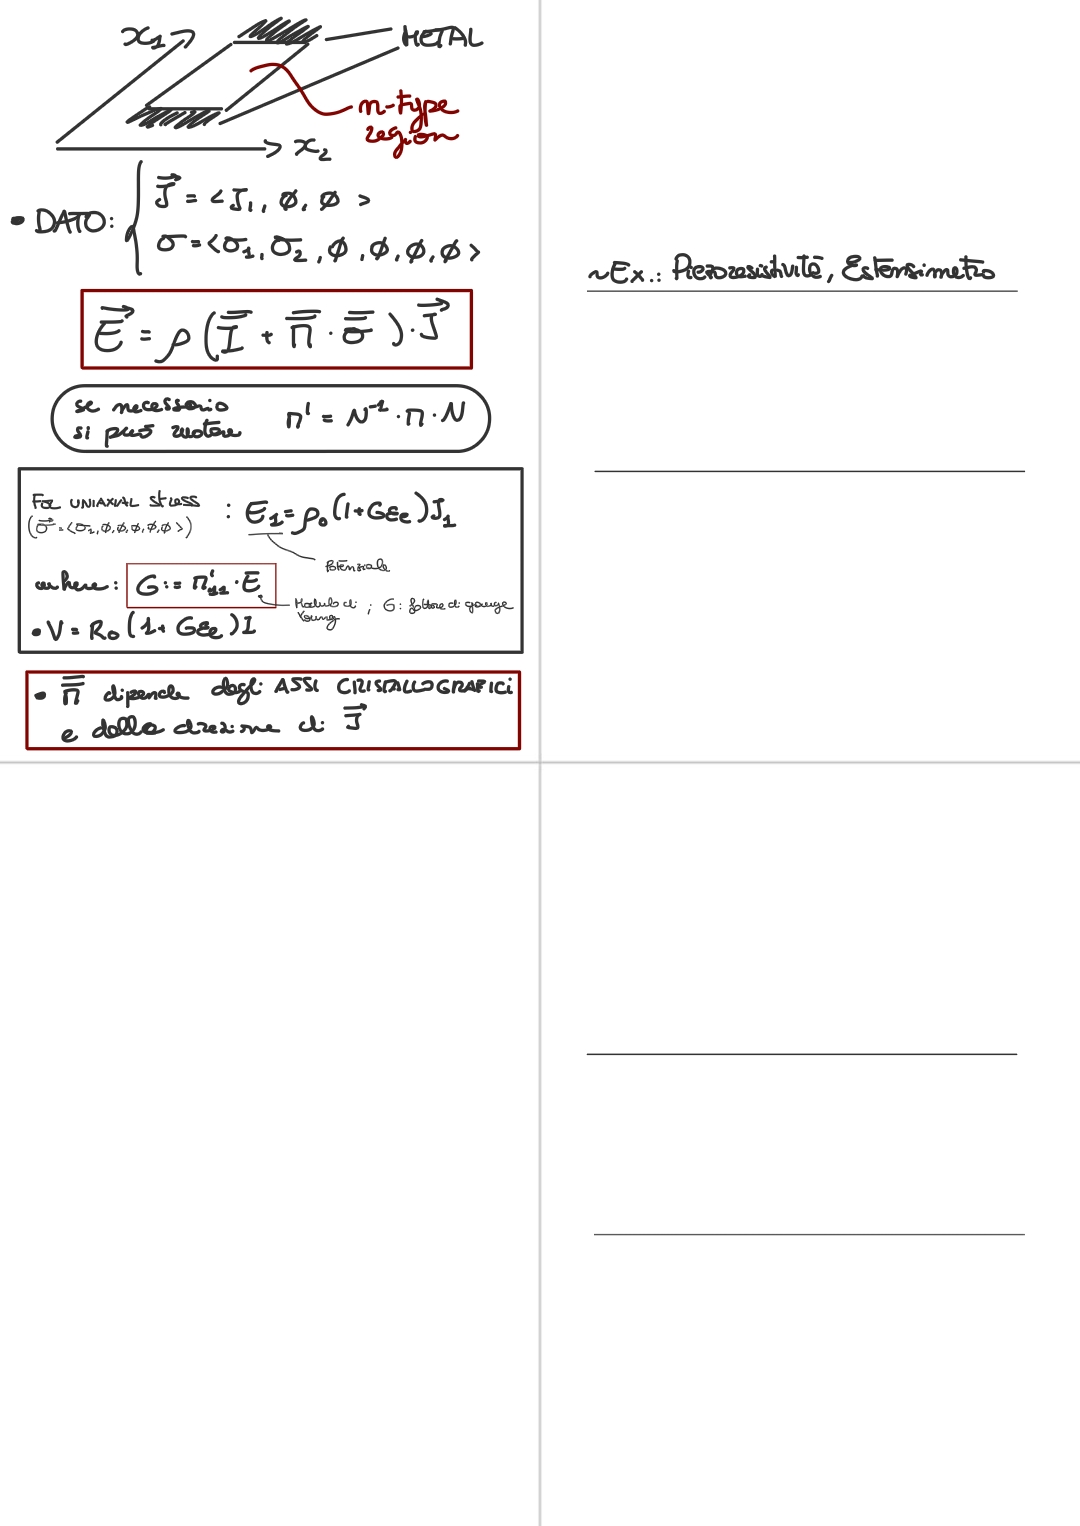 x₁
METAL
n-type
region
x₂
• DATO: { J⃗ = <J₁, ∅, ∅ >
σ = <σ₁, σ₂, ∅, ∅, ∅, ∅ >
E⃗ = ρ (I̿ + Π̿ · σ̿ ) · J⃗
se necessario
si può ruotare
Π' = N⁻¹ · Π · N
For UNIAXIAL stress : E₁ = ρ₀ (1+Gεe) J₁
(σ⃗ = <σ₁, ∅, ∅, ∅, ∅, ∅ >)
Potenziale
where: G := Π'₁₁ · E
Modulo di Young ; G: fattore di gauge
• V = R₀ (1+ Gεe) I
• Π̿ dipende dagli ASSI CRISTALLOGRAFICI
e dalla direzione di J⃗
~Ex.: Piezoresistività, Estensimetro